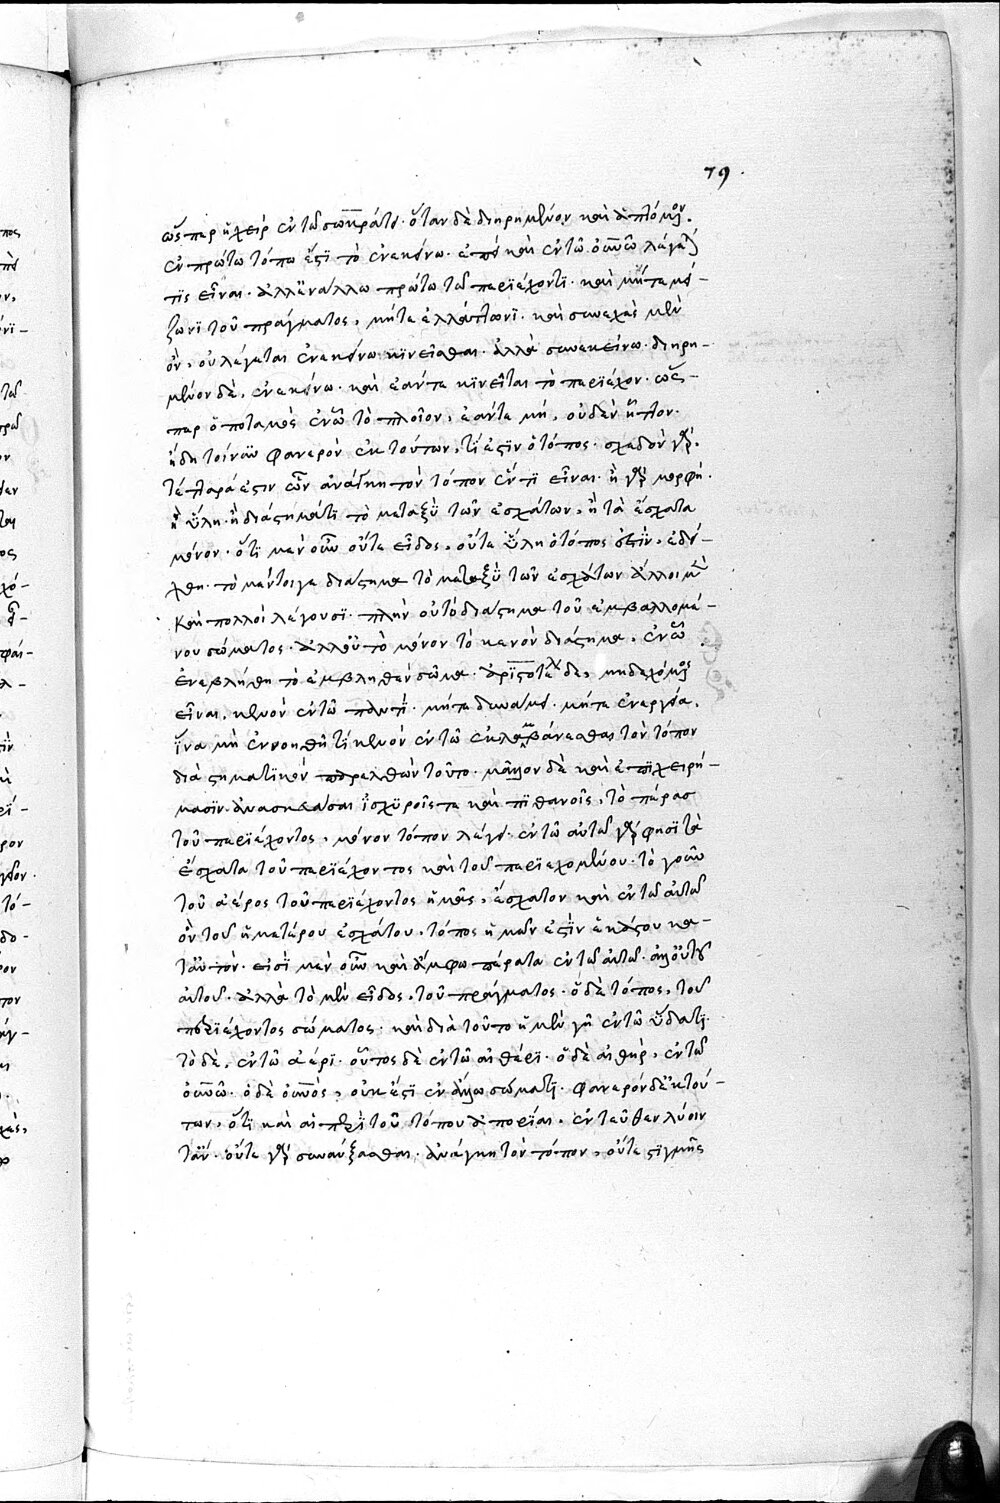 79.
ὥσπερ ἡ χεὶρ ἐν τῶ σωκράτει. ὅταν δὲ διηρημένον καὶ ἁπτόμενον.
ἐν πρώτω τόπω ἐστὶ τὸ ἐν ἐκείνω. ἐπεὶ καὶ ἐν τῶ οὐνῶ λέγεται
τὶς εἶναι. ἀλλ' ἐν ἄλλω πρώτω τῶ περιέχοντι. καὶ μήτε μεί-
ζωνι τοῦ πράγματος, μήτε ἐλλάττωνι. καὶ συνεχὲς μὲν
ὂν, οὐ λέγεται ἐν ἐκείνω κινεῖσθαι. ἀλλὰ σὺν ἐκείνω. διηρη-
μένον δὲ, ἐν ἐκείνω. καὶ ἐάν τε κινεῖται τὸ περιέχον. ὥσ-
περ ὁ ποταμὸς ἐν ὧ τὸ πλοῖον, ἐάν τε μή, οὐδὲν ἧττον.
ἤδη τοίνυν φανερὸν ἐκ τούτων, τί ἐστιν ὁ τόπος. σχεδὸν γὰρ.
τέτταρά ἐστιν ὧν ἀνάγκη τὸν τόπον ἕν τι εἶναι. ἢ γὰρ μορφή.
ἢ ὕλη. ἢ διάστημά τι τὸ μεταξὺ τῶν ἐσχάτων, ἢ τὰ ἔσχατα
μόνον. ὅτι μὲν οὖν οὔτε εἶδος, οὔτε ὕλη ὁ τόπος ἐστὶν, ἐδεί-
χθη. τὸ μέντοιγε διάστημα τὸ μεταξὺ τῶν ἐσχάτων ἄλλοι μὲν
καὶ πολλοὶ λέγουσι. πλὴν οὐ τὸ διάστημα τοῦ ἐμβαλλομέ-
νου σώματος. ἀλλ' αὐτὸ μόνον τὸ κενὸν διάστημα. ἐν ὧ
ἐνεβλήθη τὸ ἐμβληθὲν σῶμα. ἀριστοτέλης δὲ, μὴ δεχόμενος
εἶναι κενὸν ἐν τῶ παντὶ. μήτε δυνάμει. μήτε ἐνεργεία.
ἵνα μὴ ἐννοηθῆ τί κενὸν ἐν τῶ ἐκλαμβάνεσθαι τὸν τόπον
διάστηματικόν παρελθὼν τοῦτο. μᾶλλον δὲ καὶ ἐπιχειρή-
μασιν ἀνασκευάσαι ἰσχυροῖς τε καὶ πιθανοῖς, τὸ πέρασ
τοῦ περιέχοντος, μόνον τόπον λέγει. ἐν τῶ αὐτῶ γάρ φησι τὰ
ἔσχατα τοῦ περιέχοντος καὶ τοῦ περιεχομένου. τὸ γοῦν
τοῦ ἀέρος τοῦ περιέχοντος ἡμᾶς, ἔσχατον καὶ ἐν τῶ αὐτῶ
ὂν τοῦ ἡμετέρου ἐσχάτου, τόπος ἡμῶν ἐστιν ἑκάστου κα-
τ' αὐτὸν. εἰσὶ μὲν οὖν καὶ ἄμφω πέρατα ἐν τῶ αὐτῶ. ἀλλ' οὐ τοῦ
αὐτοῦ. ἀλλὰ τὸ μὲν εἶδος, τοῦ πράγματος. ὁ δὲ τόπος, τοῦ
περιέχοντος σώματος. καὶ διὰ τοῦτο ἡ μὲν γῆ ἐν τῶ ὕδατι.
τὸ δὲ, ἐν τῶ ἀέρι. οὗτος δὲ ἐν τῶ αἰθέρι. ὁ δὲ αἰθὴρ, ἐν τῶ
οὐνῶ. ὁ δὲ οὐνὸς, οὐκ ἔστι ἐν ἄλλω σώματι. φανερὸν δ' ἐκ τού-
των, ὅτι καὶ αἱ περὶ τοῦ τόπου ἀπορίαι. ἐντεῦθεν λύοιν
τ' ἄν. οὔτε γὰρ συναύξεσθαι. ἀνάγκη τὸν τόπον, οὔτε στιγμῆς